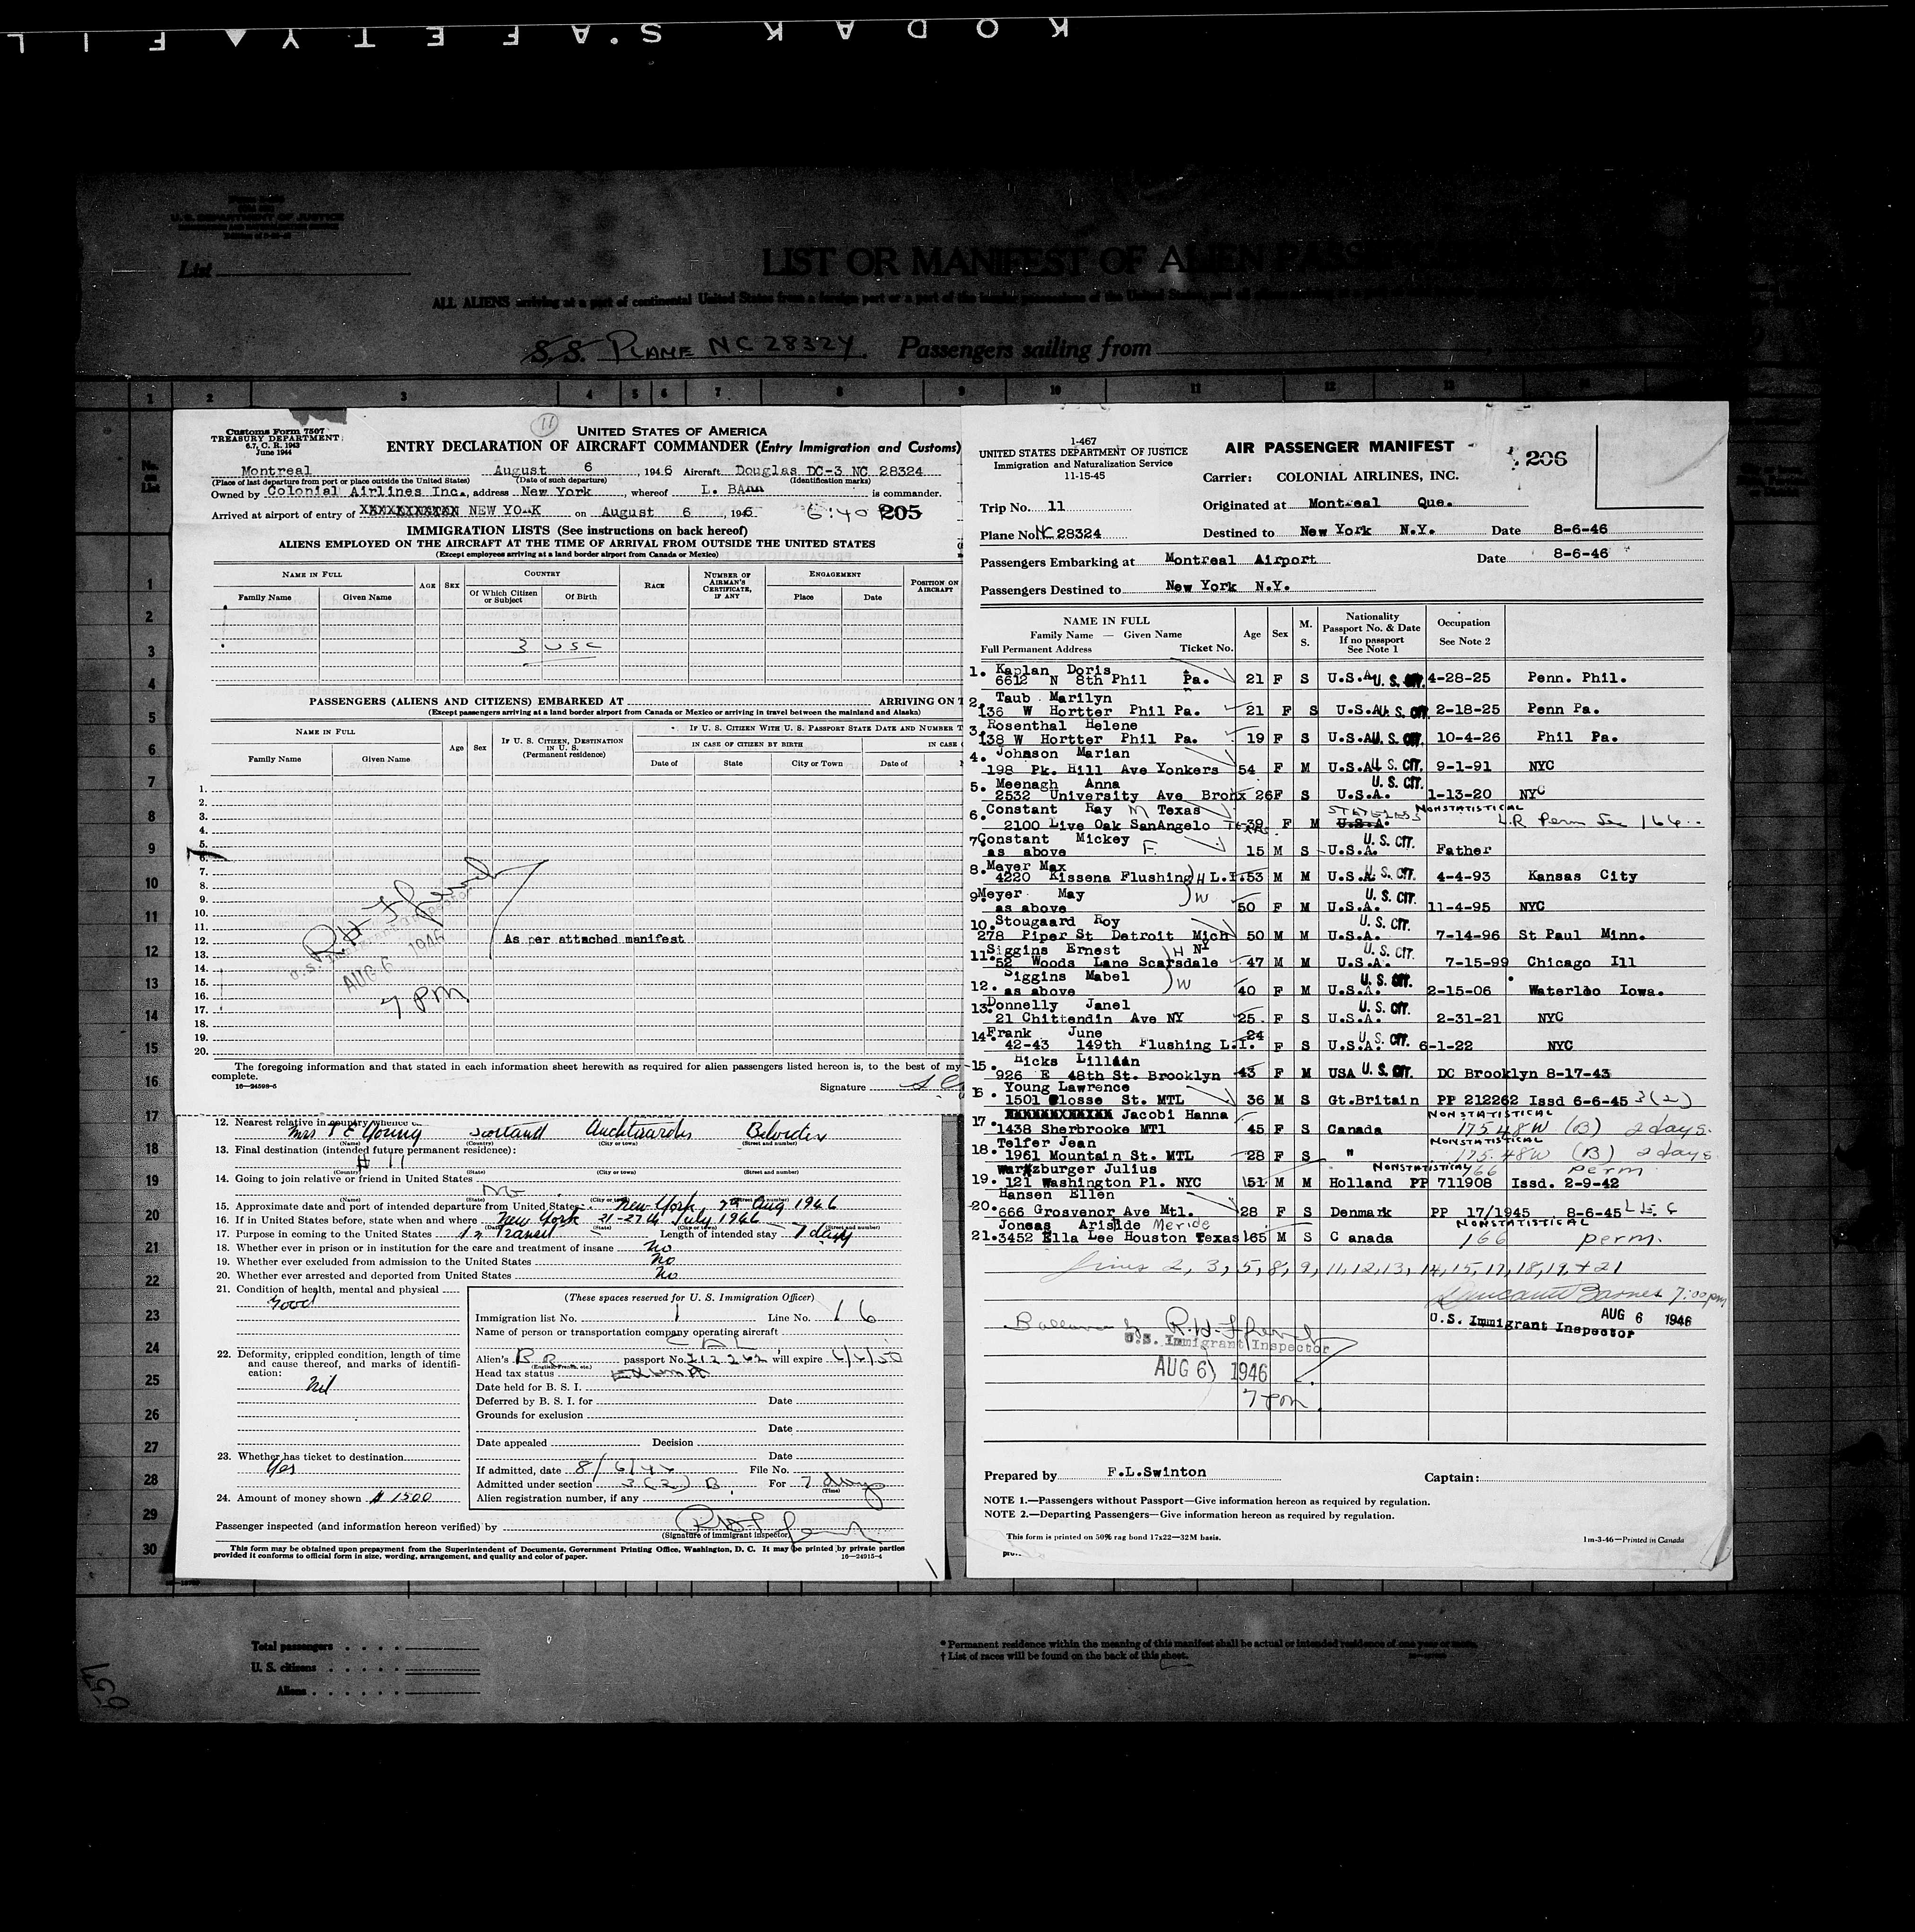 KODAK SAFETY FIL
U. S. DEPARTMENT OF JUSTICE
List
LIST OR MANIFEST OF ALIEN PASSE
ALL ALIENS arriving at a port of continental United States from a foreign port or a port of the insular possessions of the United States, and all
S.S. PLANE NC 28324. Passengers sailing from
1 2 3 4 5 6 7 8 9 10 11 12 13 14
11
Customs Form 7507
TREASURY DEPARTMENT
6.7, C. R. 1943
June 1944
UNITED STATES OF AMERICA
ENTRY DECLARATION OF AIRCRAFT COMMANDER (Entry Immigration and Customs)
Montreal August 6, 1946 Aircraft Douglas DC-3 NC 28324
(Place of last departure from port or place outside the United States) (Date of such departure) (Identification marks)
Owned by Colonial Airlines Inc., address New York, whereof L. BAnn is commander.
Arrived at airport of entry of XXXXXXXXXXX NEW YORK on August 6, 1946 6:40 P 205
IMMIGRATION LISTS (See instructions on back hereof)
ALIENS EMPLOYED ON THE AIRCRAFT AT THE TIME OF ARRIVAL FROM OUTSIDE THE UNITED STATES
(Except employees arriving at a land border airport from Canada or Mexico)
NAME IN FULL AGE SEX COUNTRY RACE NUMBER OF AIRMAN'S CERTIFICATE, IF ANY ENGAGEMENT POSITION ON AIRCRAFT
Family Name Given Name Of Which Citizen or Subject Of Birth Place Date
3 USC
PASSENGERS (ALIENS AND CITIZENS) EMBARKED AT ARRIVING ON T
(Except passengers arriving at a land border airport from Canada or Mexico or arriving in travel between the mainland and Alaska)
NAME IN FULL Age Sex IF U. S. CITIZEN, DESTINATION IN U. S. (Permanent residence) IF U. S. CITIZEN WITH U. S. PASSPORT STATE DATE AND NUMBER T
IN CASE OF CITIZEN BY BIRTH IN CASE
Family Name Given Name Date of State City or Town Date of
1.
2.
3.
4.
5.
6.
7.
8.
9.
10.
11.
12. As per attached manifest
13.
14.
15.
16.
17.
18.
19.
20.
U.S. Immigrant Inspector
AUG 6 1946
7 PM
The foregoing information and that stated in each information sheet herewith as required for alien passengers listed hereon is, to the best of my
complete.
16—24598-6
Signature
12. Nearest relative in country whence
Mrs T E Young Scotland Auchterarder Belvedere
(Name) (Country) (City or town) (Street and number)
13. Final destination (intended future permanent residence):
# 11
(Country) (State) (City or town) (Street and number)
14. Going to join relative or friend in United States
No
(Name) (State) (City or town) (Street and number)
15. Approximate date and port of intended departure from United States New York 7th Aug 1946
16. If in United States before, state when and where New York 21-27th July 1946
17. Purpose in coming to the United States In Transit Length of intended stay 7 days
18. Whether ever in prison or in institution for the care and treatment of insane No
19. Whether ever excluded from admission to the United States No
20. Whether ever arrested and deported from United States No
21. Condition of health, mental and physical
Good
22. Deformity, crippled condition, length of time
and cause thereof, and marks of identifi-
cation:
Nil
23. Whether has ticket to destination
Yes
24. Amount of money shown $ 1500
(These spaces reserved for U. S. Immigration Officer)
Immigration list No. 1 Line No. 16
Name of person or transportation company operating aircraft
CAL
Alien's BR passport No. 212262 will expire 6/6/50
(English, French, etc.)
Head tax status Exempt
Date held for B. S. I.
Deferred by B. S. I. for Date
Grounds for exclusion
Date
Date appealed Decision
Date
If admitted, date 8/6/46 File No.
Admitted under section 3(2) B. For 7 days
(Time)
Alien registration number, if any
Passenger inspected (and information hereon verified) by
(Signature of immigrant inspector)
This form may be obtained upon prepayment from the Superintendent of Documents, Government Printing Office, Washington, D. C. It may be printed by private parties
provided it conforms to official form in size, wording, arrangement, and quality and color of paper.
16—24915-4
I-467
UNITED STATES DEPARTMENT OF JUSTICE
Immigration and Naturalization Service
11-15-45
AIR PASSENGER MANIFEST
206
Carrier: COLONIAL AIRLINES, INC.
Trip No. 11 Originated at Montreal Que.
Plane No. NC 28324 Destined to New York N.Y. Date 8-6-46
Passengers Embarking at Montreal Airport Date 8-6-46
Passengers Destined to New York N.Y.
NAME IN FULL Age Sex M. S. Nationality Passport No. & Date If no passport See Note 1 Occupation See Note 2
Family Name — Given Name
Full Permanent Address Ticket No.
1. Kaplan Doris
6612 N 8th Phil Pa. 21 F S U.S.A. U. S. CIT. 4-28-25 Penn. Phil.
2. Taub Marilyn
136 W Hortter Phil Pa. 21 F S U.S.A. U. S. CIT. 2-18-25 Penn Pa.
3. Rosenthal Helene
138 W Hortter Phil Pa. 19 F S U.S.A. U. S. CIT. 10-4-26 Phil Pa.
4. Johnson Marian
198 Pk. Hill Ave Yonkers 54 F M U.S.A. U. S. CIT. 9-1-91 NYC
5. Meenagh Anna U. S. CIT.
2532 University Ave Bronx 26 F S U.S.A. 1-13-20 NYC
6. Constant Ray M Texas STATELESS NONSTATISTICAL
2100 Live Oak SanAngelo Texas 39 F M U.S.A. L.R Perm Sec 166
7. Constant Mickey U. S. CIT.
as above F. 15 M S U.S.A. Father
8. Meyer Max
4220 Kissena Flushing H L.I. 53 M M U.S.A. U. S. CIT. 4-4-93 Kansas City
9. Meyer May W U. S. CIT.
as above 50 F M U.S.A. 11-4-95 NYC
10. Stougaard Roy U. S. CIT.
278 Piper St Detroit Mich 50 M M U.S.A. 7-14-96 St Paul Minn.
11. Siggins Ernest H NY U. S. CIT.
52 Woods Lane Scarsdale 47 M M U.S.A. 7-15-99 Chicago Ill
12. Siggins Mabel W U. S. CIT.
as above 40 F M U.S.A. 2-15-06 Waterloo Iowa.
13. Donnelly Janel U. S. CIT.
21 Chittendin Ave NY 25 F S U.S.A. 2-31-21 NYC
14. Frank June 24
42-43 149th Flushing L.I. F S U.S.A. U. S. CIT. 6-1-22 NYC
15. Hicks Lillian
926 E 48th St. Brooklyn 43 F M USA U. S. CIT. DC Brooklyn 8-17-43
16. Young Lawrence
1501 Closse St. MTL 36 M S Gt.Britain PP 212262 Issd 6-6-45 3(2)
17. XXXXXXXXXXXX Jacobi Hanna NONSTATISTICAL
1438 Sherbrooke MTl 45 F S Canada 175.48W (B) 2 days.
18. Telfer Jean NONSTATISTICAL
1961 Mountain St. MTL 28 F S " 175.48W (B) 2 days
19. Warzburger Julius NONSTATISTICAL 166 perm
121 Washington Pl. NYC 51 M M Holland PP 711908 Issd. 2-9-42
20. Hansen Ellen
666 Grosvenor Ave Mtl. 28 F S Denmark PP 17/1945 8-6-45
21. Joneas Aristide Meride NONSTATISTICAL
3452 Ella Lee Houston Texas 65 M S Canada 166 perm.
Lines 2, 3, 5, 8, 9, 11, 12, 13, 14, 15, 17, 18, 19, + 21
7:00 pm
U.S. Immigrant Inspector AUG 6 1946
Balance by R.H.
U.S. Immigrant Inspector
AUG 6 1946
7 PM.
Prepared by F.L.Swinton Captain:
NOTE 1.—Passengers without Passport—Give information hereon as required by regulation.
NOTE 2.—Departing Passengers—Give information hereon as required by regulation.
This form is printed on 50% rag bond 17x22—32M basis. 1m-3-46—Printed in Canada
Total passengers
U. S. citizens
Aliens
* Permanent residence within the meaning of this manifest shall be actual or intended residence of one year or more.
† List of races will be found on the back of this sheet.